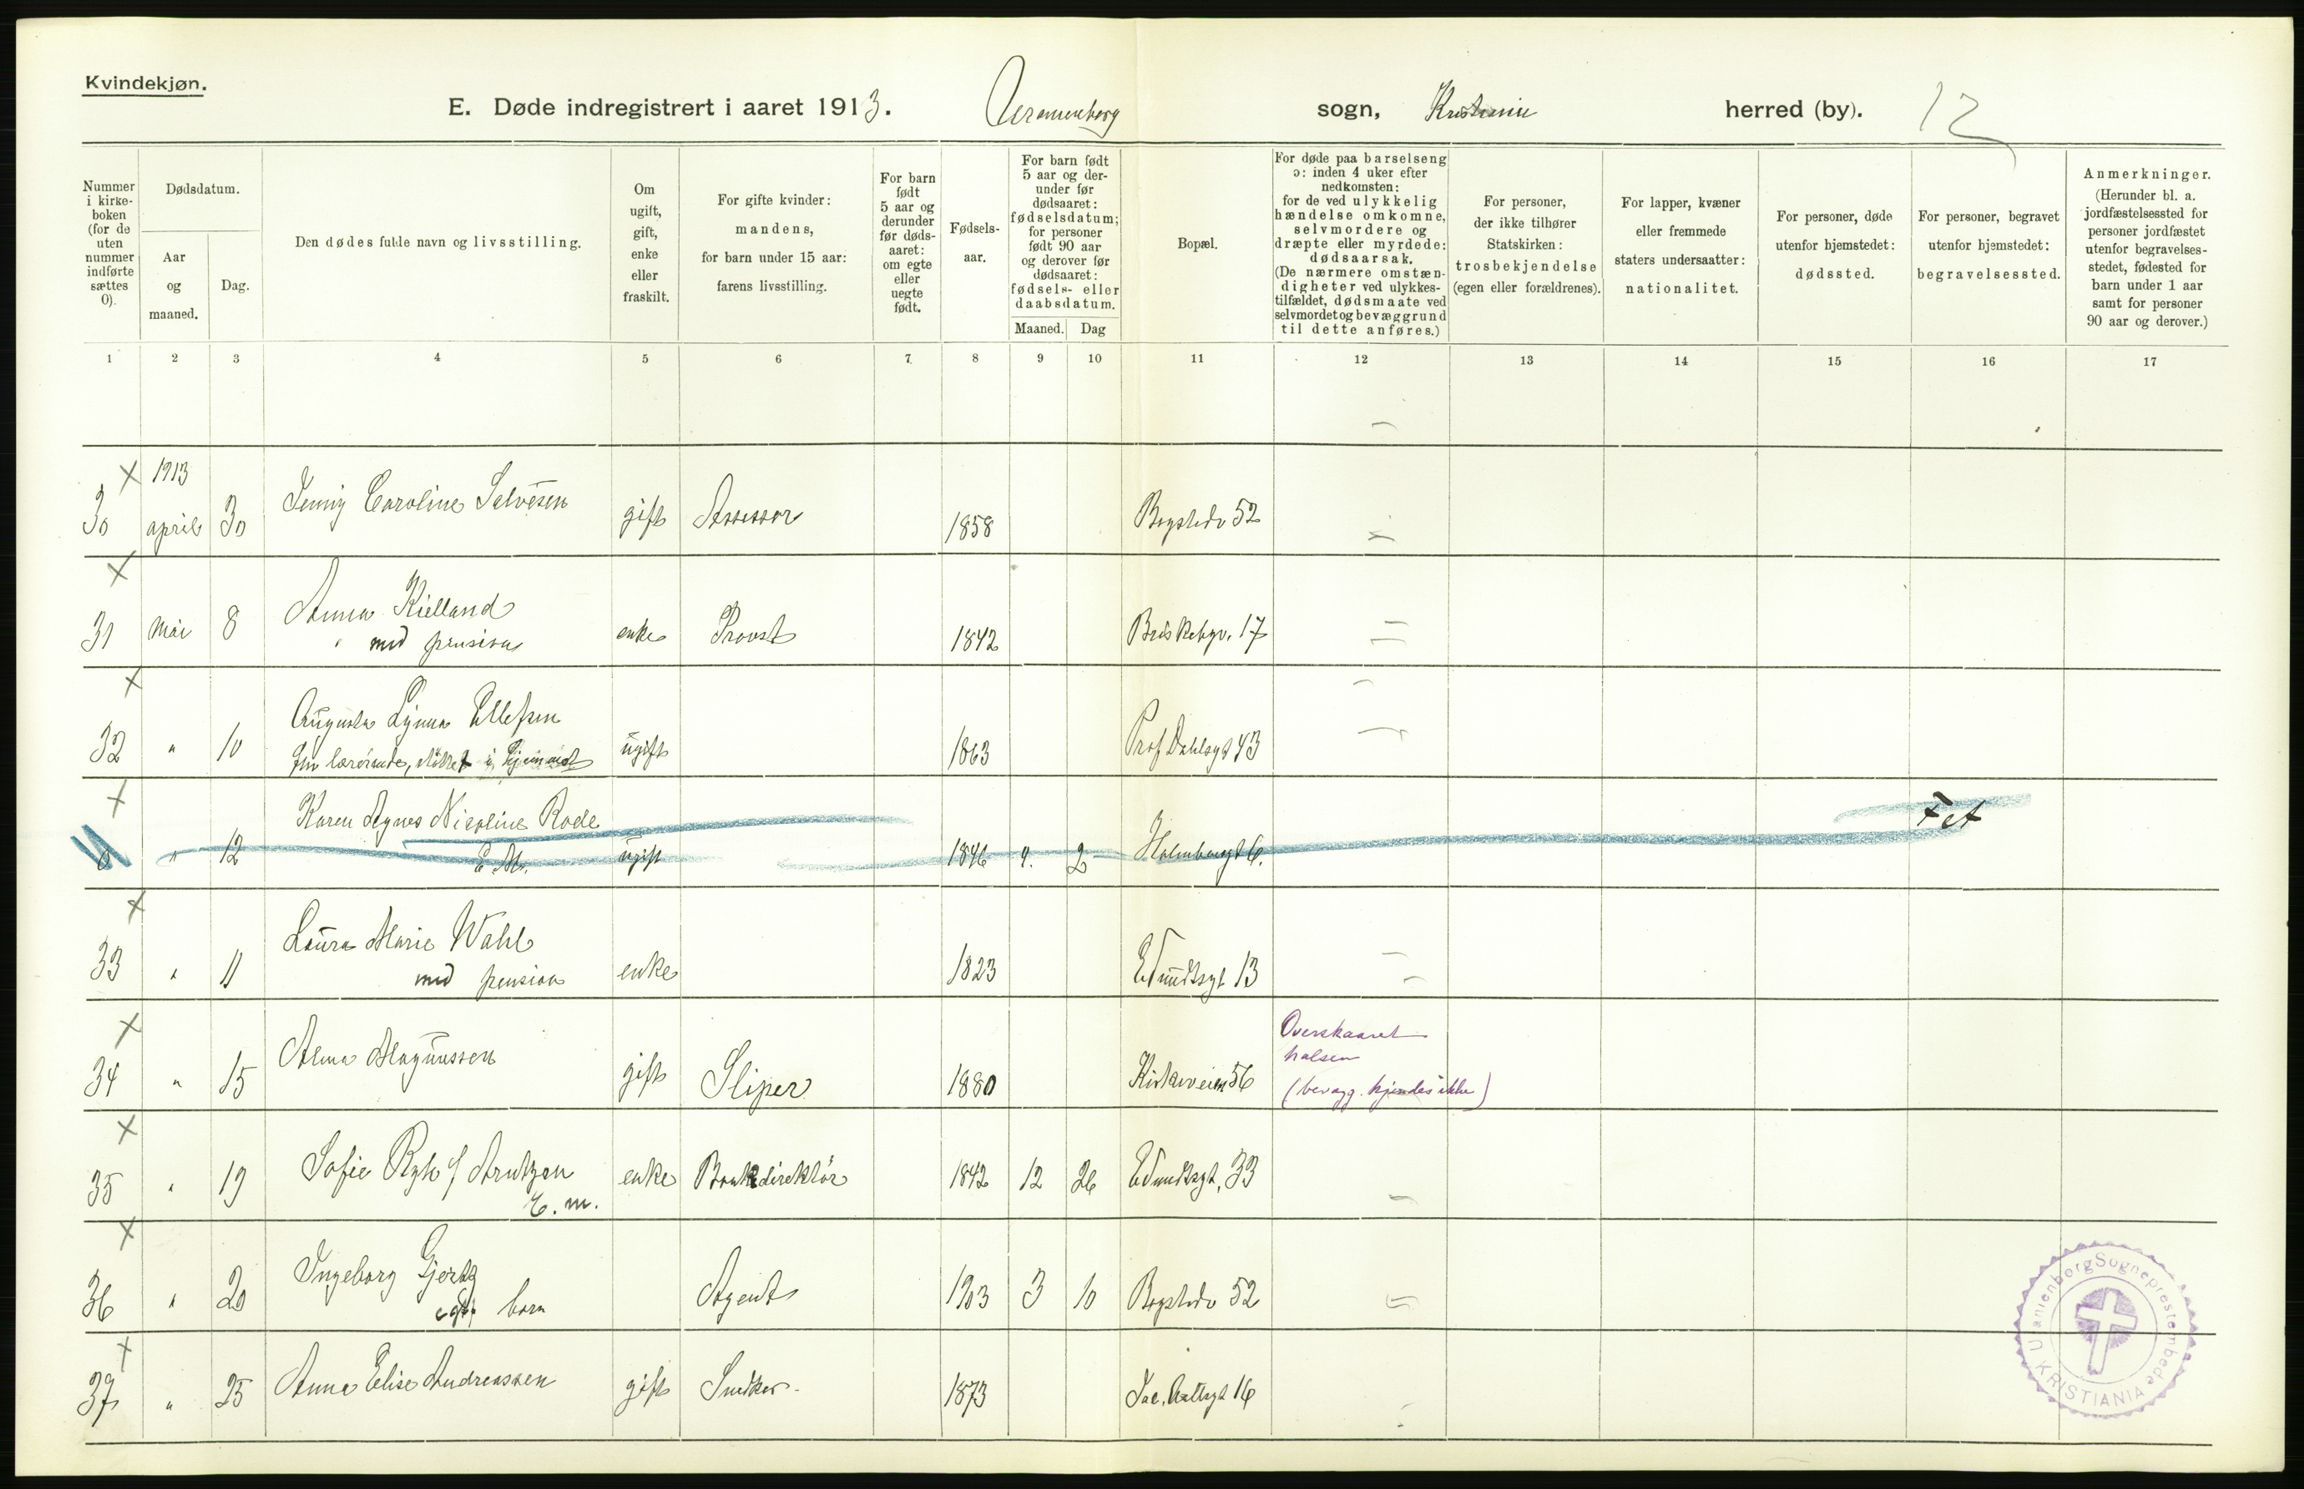 Kvindekjøn.
E. Døde indregistrert i aaret 1913. Uranienborg sogn, Kristiania herred (by). 12
Nummer i kirkeboken (for de uten nummer indførte sættes 0).
Dødsdatum.
Aar og maaned.
Dag.
Den dødes fulde navn og livsstilling.
Om ugift, gift, enke eller fraskilt.
For gifte kvinder: mandens, for barn under 15 aar: farens livsstilling.
For barn født 5 aar og derunder før dødsaaret: om egte eller uegte født.
Fødselsaar.
For barn født 5 aar og derunder før dødsaaret: fødselsdatum; for personer født 90 aar og derover før dødsaaret: fødsels- eller daabsdatum.
Maaned. Dag
Bopæl.
For døde paa barselseng ɔ: inden 4 uker efter nedkomsten: for de ved ulykkelig hændelse omkomne, selvmordere og dræpte eller myrdede: dødsaarsak. (De nærmere omstændigheter ved ulykkestilfældet, dødsmaate ved selvmordet og bevæggrund til dette anføres.)
For personer, der ikke tilhører Statskirken: trosbekjendelse (egen eller forældrenes).
For lapper, kvæner eller fremmede staters undersaatter: nationalitet.
For personer, døde utenfor hjemstedet: dødssted.
For personer, begravet utenfor hjemstedet: begravelsessted.
Anmerkninger. (Herunder bl. a. jordfæstelsessted for personer jordfæstet utenfor begravelsesstedet, fødested for barn under 1 aar samt for personer 90 aar og derover.)
1 2 3 4 5 6 7 8 9 10 11 12 13 14 15 16 17
1913
30 april 30 Jenny Caroline Salvesen gift Assessor 1858 Bogstadv 52
31 Mai 8 Anna Kielland enke Provst 1842 Briskebyv. 17
med pension
32 " 10 Augusta Ellefsen ugift 1863 Prof Dahlsgt 43
lærerinde, i hjemmet
0 " 12 Karen Agnes Nicoline Rode ugift 1846 4. 2 Holmboesgt 6. Fet
E. M.
33 " 11 Laura Marie Wahl enke 1823 Eilundtsgt 13
med pension
34 " 15 Alma Magnussen gift Sliper 1880 Kirkeveien 56 Overskaaret halsen
(bevægg. kjendes ikke)
35 " 19 Sofie Rygh f Arntzen enke Bankdirektør 1842 12 26 Eilundtsgt. 33
E. m.
36 " 20 Ingeborg Gjertz Agent 1903 3 10 Bogstadv 52
egte barn
37 " 25 Anna Elise Andreassen gift Snedker 1873 Jac. Aallsgt 16
Uranienborg Sogneprestembede KRISTIANIA